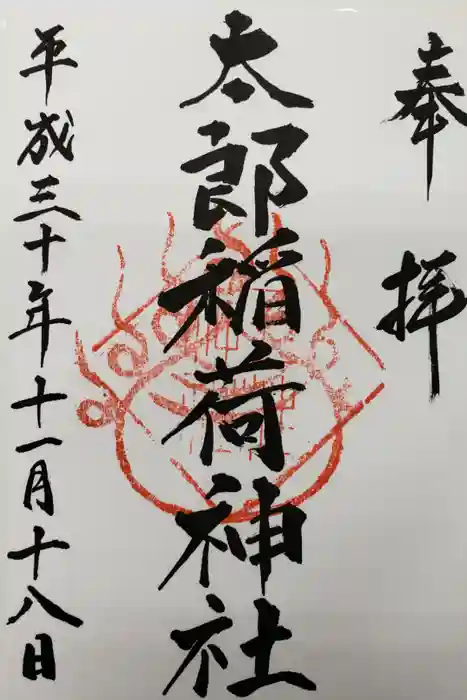 奉拝
太郎稲荷神社
平成三十年十一月十八日